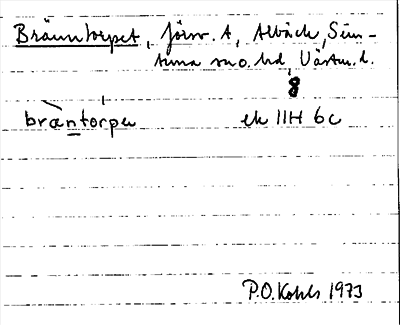 Bränntorpet, förr. t, Albäck, Sun-
tuna sn o. hd, Västm. l.
8
bräntorpeɩ ek 11H 6c
P.O. Kohls 1973